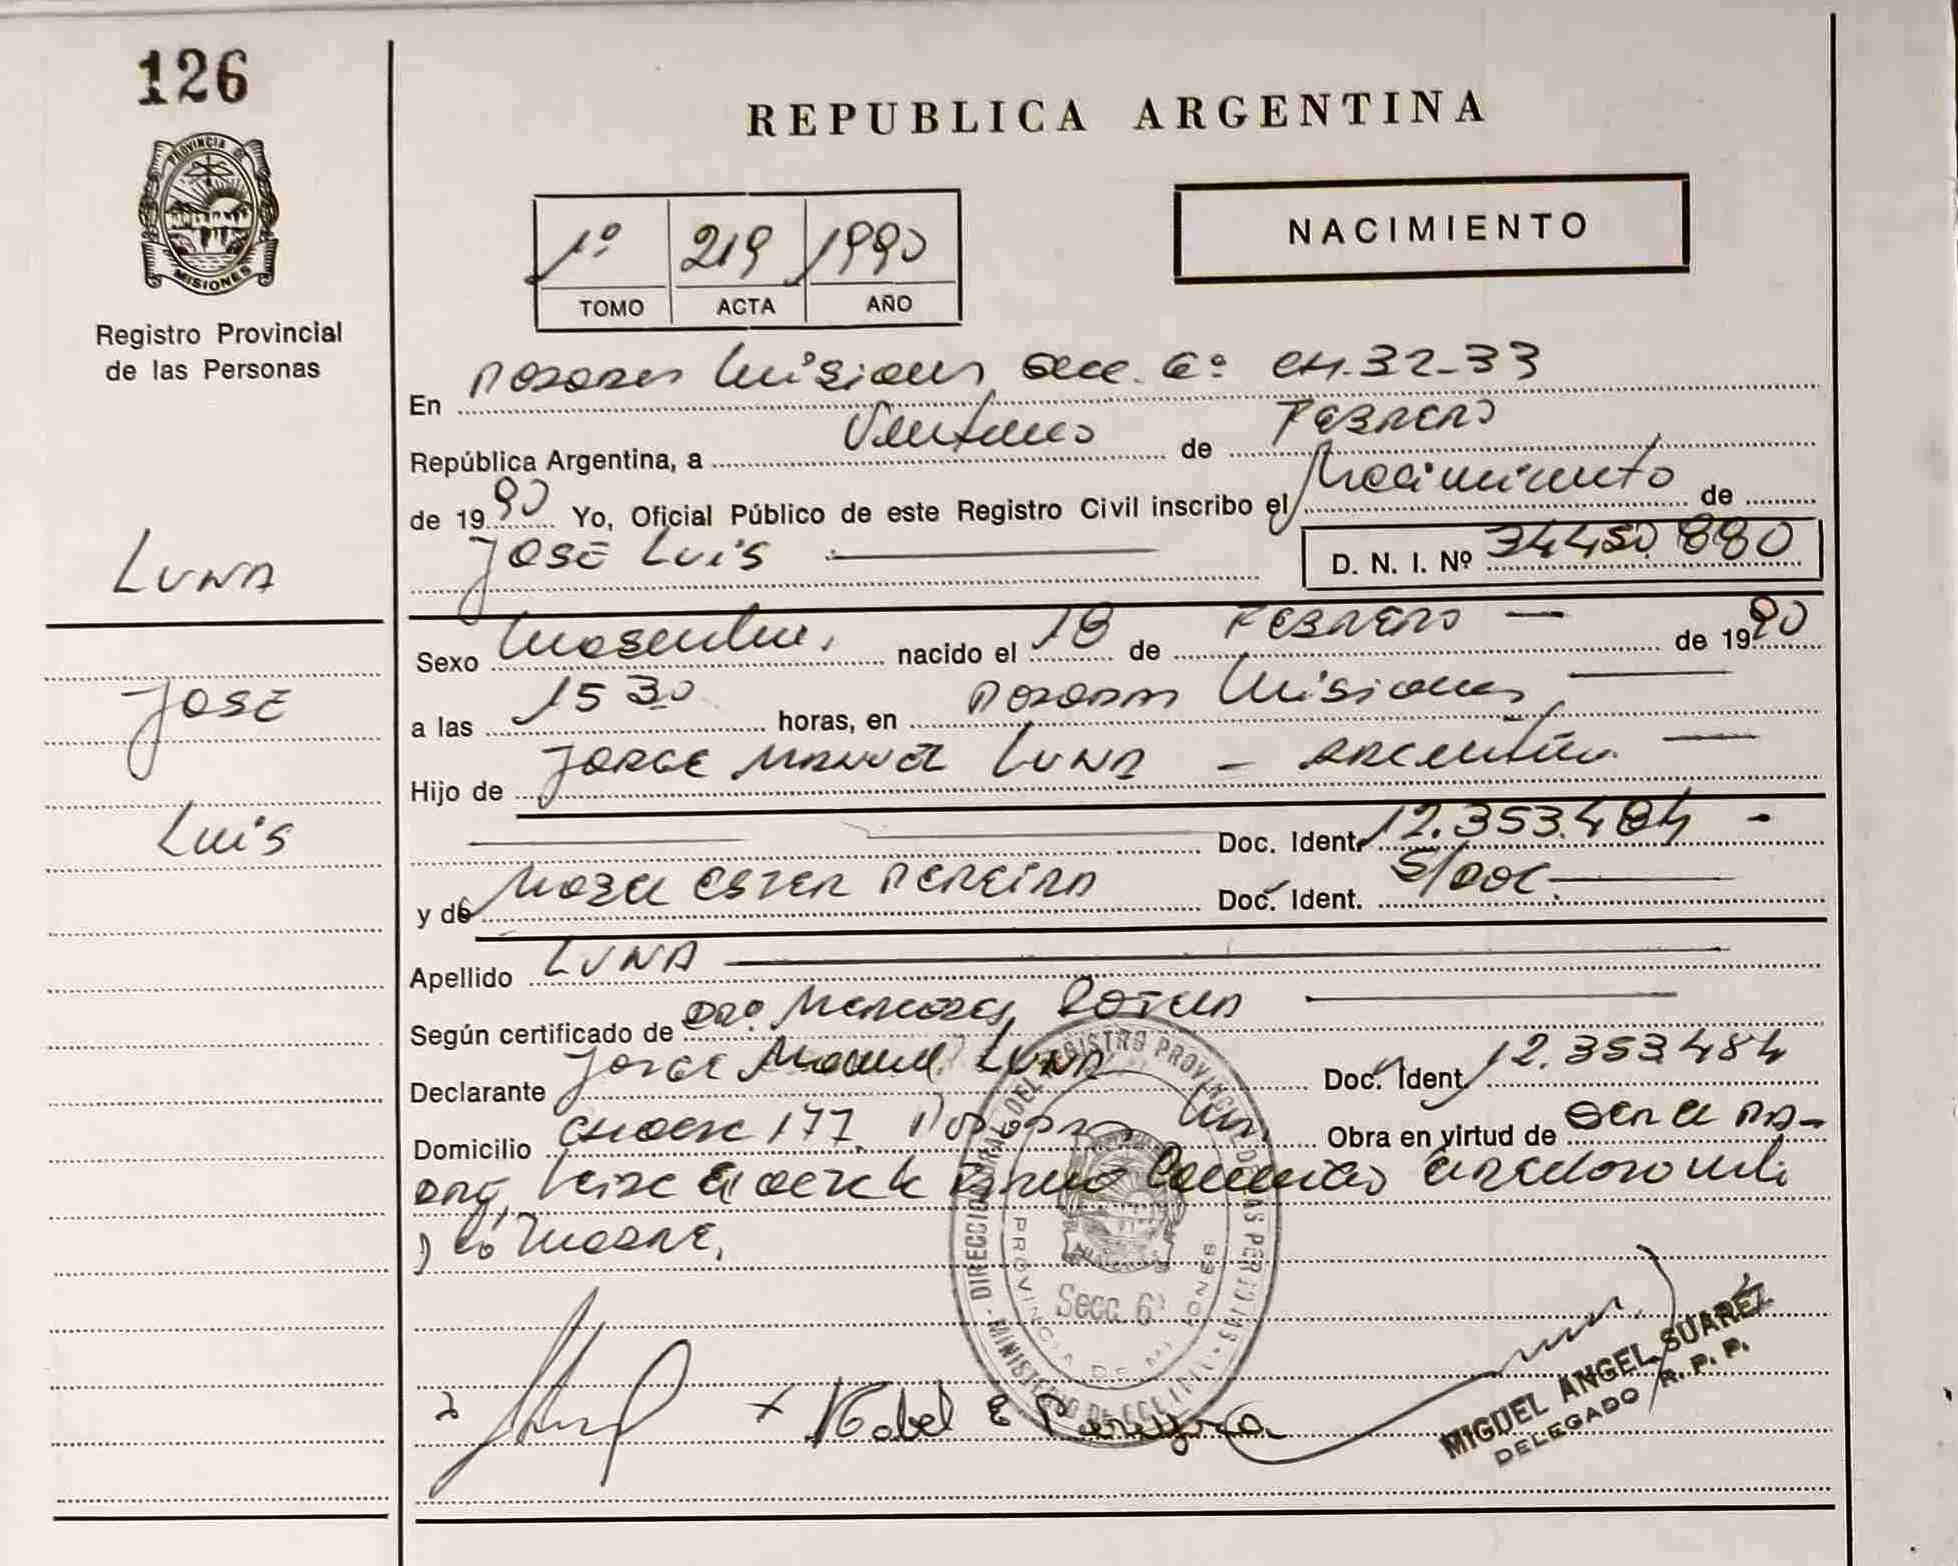 126
PROVINCIA DE
MISIONES
Registro Provincial
de las Personas
LUNA
JOSE
Luis
REPUBLICA ARGENTINA
NACIMIENTO
1º 219 1990
TOMO ACTA AÑO
En Posadas Misiones, Secc. 6º CH. 32-33
República Argentina, a Veintuno de FEBRERO
de 1990 Yo, Oficial Público de este Registro Civil inscribo el Nacimiento de
JOSE LUIS D. N. I. Nº 34450.880
Sexo Masculino, nacido el 18 de FEBRERO de 1990
a las 15 30 horas, en Posadas Misiones
Hijo de JORGE MANUEL LUNA - Argentino.
Doc. Ident. 12.353.484 -
y de ESTER PEREIRA Doc. Ident. S/DOC.
Apellido LUNA
Según certificado de Dra. Mercedes
Declarante Jorge Manuel LUNA Doc. Ident. 12.353.484
Domicilio 177 Obra en virtud de Ser el Pa-
y la madre.
DIRECCION GRAL. DEL REGISTRO PROVINCIAL DE LAS PERSONAS
PROVINCIA DE MISIONES
Secc. 6ª
MIGUEL ANGEL SUAREZ
DELEGADO R. P. P.